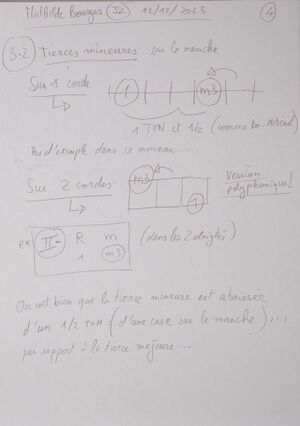 Mathilde Bourges J2 12/12/2025 4
3-2 Tierces mineures sur le manche
Sur 1 corde 1 m3
1 TON et 1/2 (comme Do-Mibémol)
Pas d'exemple dans ce morceau...
Sur 2 cordes m3 1 Version polyphonique!
ex: II- R m (dans les 2 doigtés)
1 m3
On voit bien que la tierce mineure est abaissée
d'un 1/2 TON (d'une case sur le manche)...
par rapport à la tierce majeure...